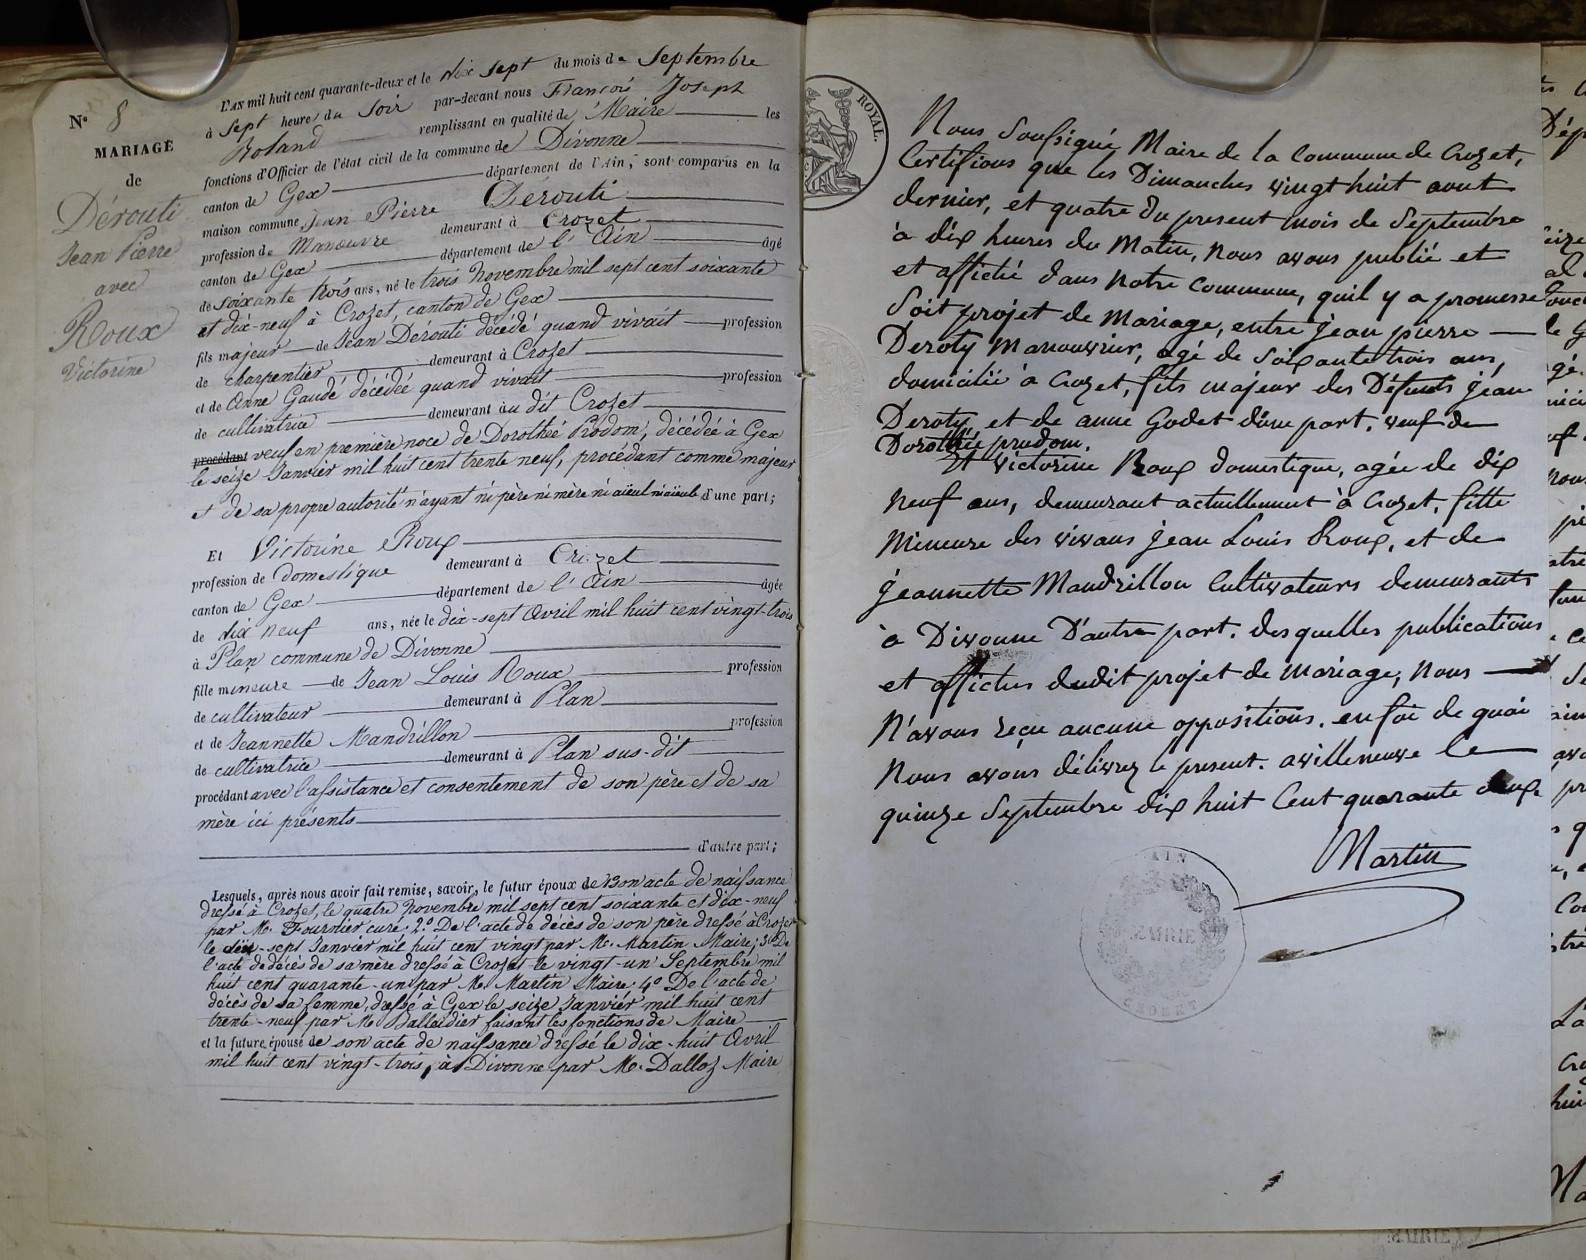 N° 8
MARIAGE
de
Dérouti
Jean Pierre
avec
Roux
Victorine
L'AN mil huit cent quarante-deux et le dix sept du mois de Septembre
à Sept heures du Soir par-devant nous François Joseph
Roland remplissant en qualité de Maire les
fonctions d'Officier de l'état civil de la commune de Divonne
canton de Gex département de l'Ain, sont comparus en la
maison commune Jean Pierre Derouti
profession de Manoeuvre demeurant à Crozet
canton de Gex département de l'Ain âgé
de soixante trois ans, né le trois Novembre mil sept cent soixante
et dix-neuf à Crozet, canton de Gex
fils majeur de Jean Dérouti décédé quand vivait profession
de charpentier demeurant à Crozet
et de Anne Gaudé décédée quand vivait profession
de cultivatrice demeurant àu dit Crozet
procédant veuf en première noce de Dorothée Prodom, décédée à Gex
le seize Janvier mil huit cent trente neuf, procédant comme majeur
et de sa propre autorité n'ayant ni père ni mère ni aïeul ni aïeule d'une part;
Et Victorine Roux
profession de domestique demeurant à Crozet
canton de Gex département de l'Ain âgée
de dix neuf ans, née le dix-sept Avril mil huit cent vingt-trois
à Plan commune de Divonne
fille mineure de Jean Louis Roux profession
de cultivateur demeurant à Plan
et de Jeannette Mandrillon profession
de cultivatrice demeurant à Plan sus-dit
procédant avec l'assistance et consentement de son père et de sa
mère ici présents
d'autre part;
Lesquels, après nous avoir fait remise, savoir, le futur époux de 1° son acte de naissance
dressé à Crozet, le quatre Novembre mil sept cent soixante et dix-neuf
par Mr. Fournier curé; 2° De l'acte de décès de son père dressé à Crozet
le dix-sept Janvier mil huit cent vingt par Mr. Martin Maire; 3° De
l'acte de décès de sa mère dressé à Crozet le vingt-un Septembre mil
huit cent quarante-un par Mr. Martin Maire; 4° De l'acte de
décès de sa femme, dressé à Gex le seize Janvier mil huit cent
trente-neuf par Mr. faisant les fonctions de Maire
et la future épouse de son acte de naissance dressé le dix-huit Avril
mil huit cent vingt-trois, à Divonne par Mr. Dalloz Maire
ROYAL.
Nous Soussigné Maire de la Commune de Crozet,
Certifions que les Dimanches vingt huit aout
dernier, et quatre du present mois de Septembre
à dix heures du Matin, nous avons publié et
et affiché dans notre Commune, quil y a promesse
Soit projet de Mariage, entre jean pierre
Deroty Manouvrier, agé de Soixante trois ans,
domicilié à Crozet, fils majeur des Défunts jean
Deroty, et de anne Godet d'une part. veuf de
Dorothée prudom.
Et victorine Roux domestique, agée de dix
neuf ans, demeurant actuellement à Crozet, fille
Mineure des vivans jean Louis Roux, et de
jeannette Mandrillon Cultivateurs demeurants
à Divonne D'autre part. desquelles publications
et affiches dudit projet de Mariage, Nous
N'avons reçu aucune oppositions. en foi de quoi
Nous avons délivrez le present. a villeneuve le
quinze Septembre dix huit Cent quarante deux
Martin
AIN
MAIRIE
CROZET
MAIRIE